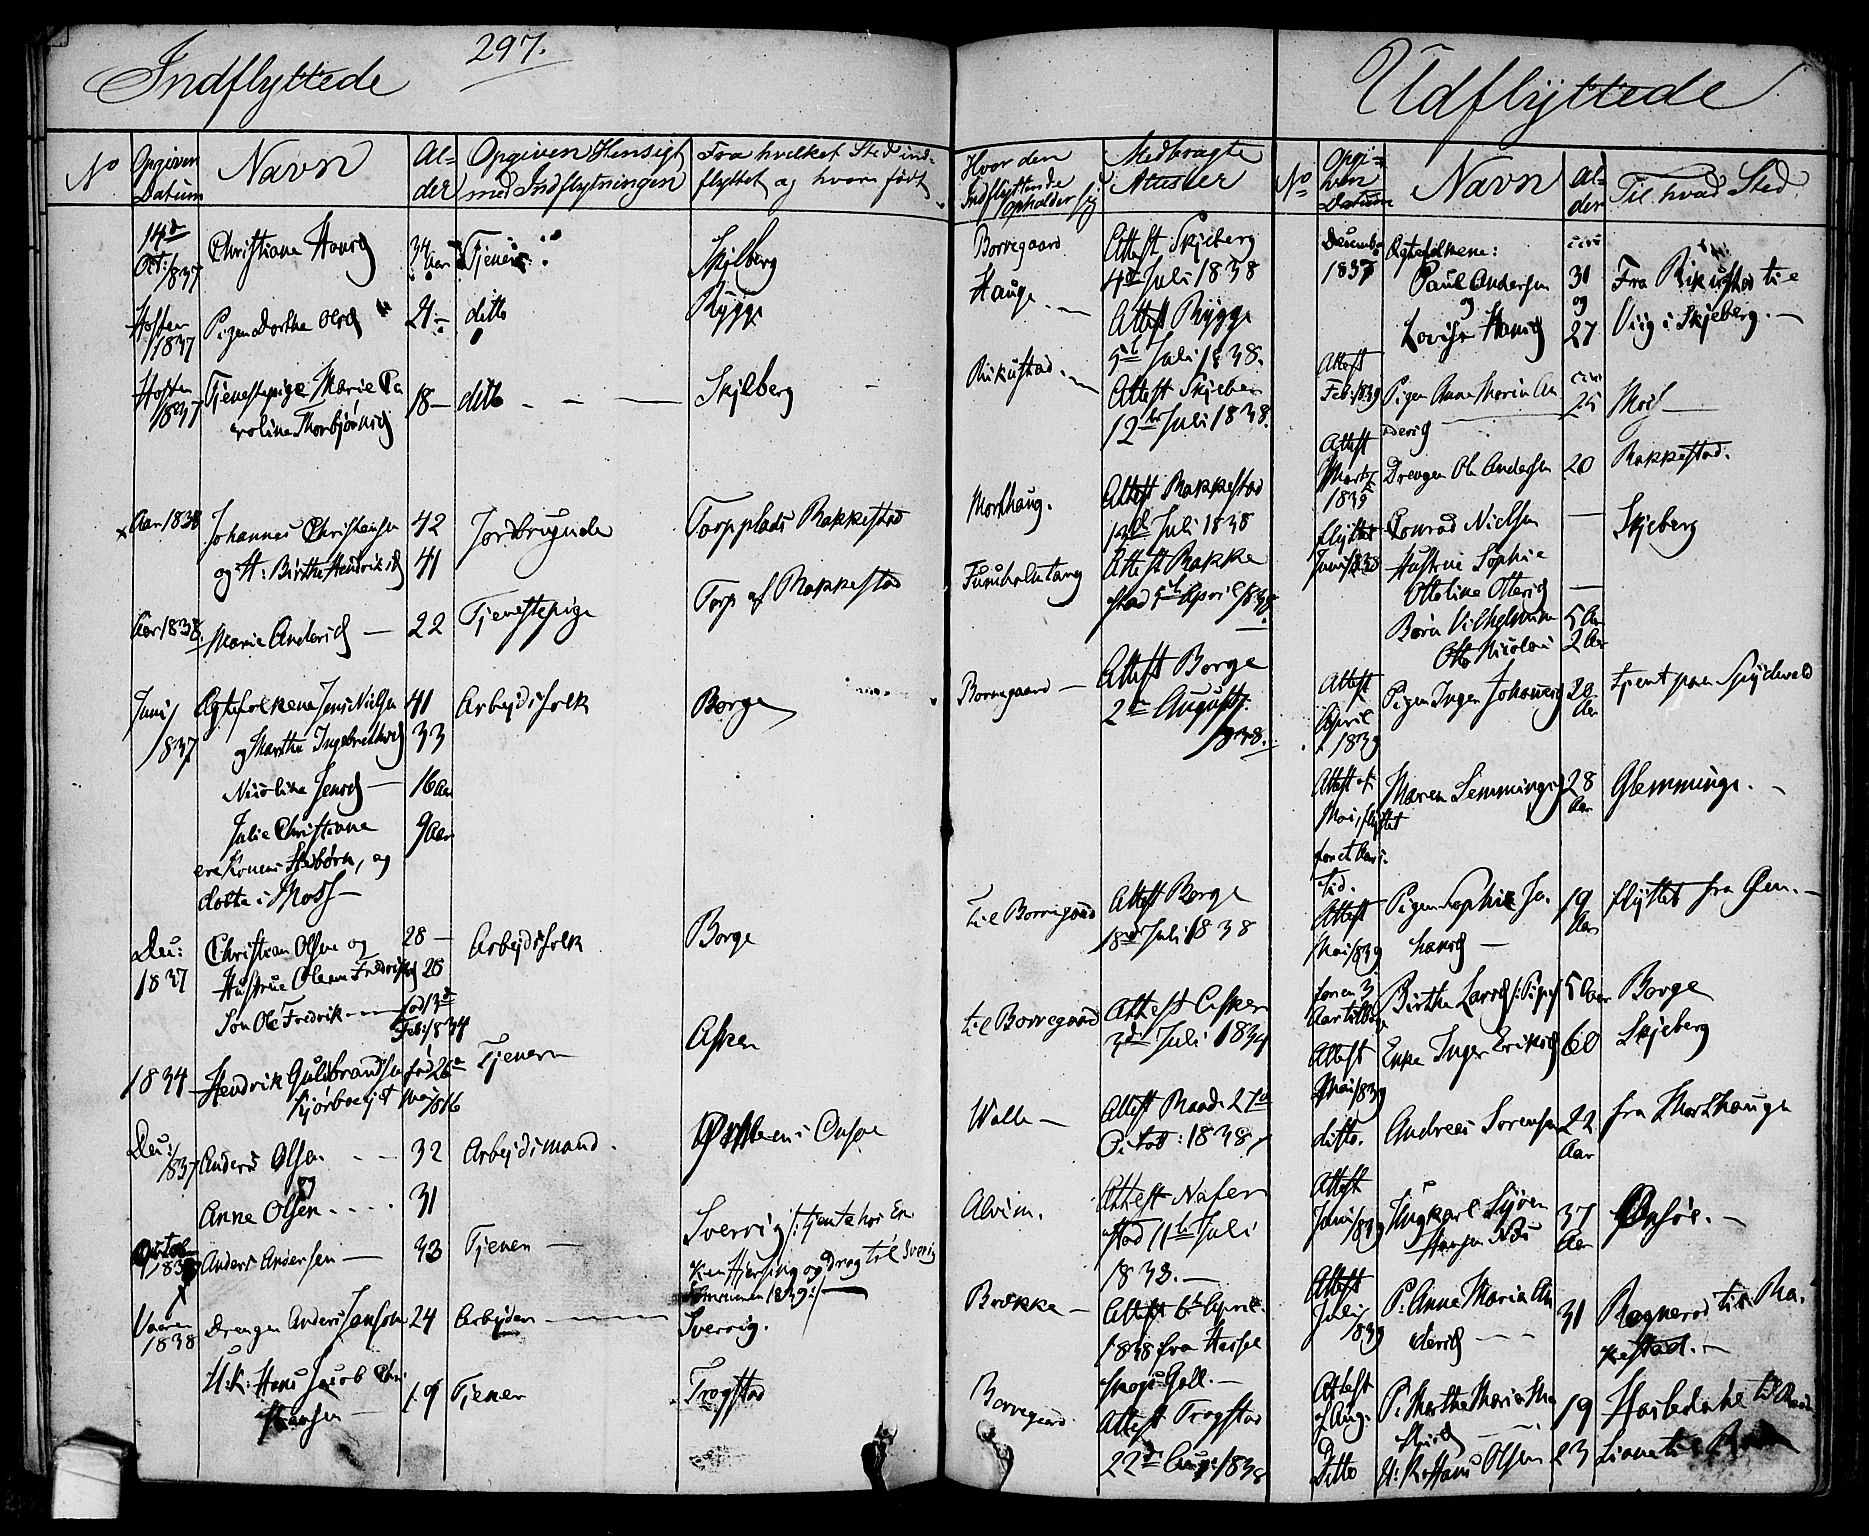 297.
Indflyttede
No
Opgiven Datum
Navn
Alder
Opgiven Hensigt med Indflytningen
Fra hvilket Sted indflyttet og hvor født
Hvor den Indflyttende opholder sig
Medbragte Attester
14d Oct: 1837 Christiane Hansd 34 Aar Tjener Skjeberg Borregaard Attest Skjeberg 4de Juli 1838
Høsten 1837 Pigen Dorthe Olsd 21 ditto Rygge Hauge Attest Rygge 5te Juli 1838.
Høsten 1837 Tjenestepige Marie Caroline Thorbjørnsd 18 ditto Skjeberg Rikustad Attest Skjeberg 12te Juli 1838.
Aar 1838 Johannes Christiansen 42 Jordbrugende Torpplads Rakkestad Morkhaug. Attest Rakkestad Juli 1838
og H: Birthe Hendriksd 41
Aar 1838. Marie Andersd 22 Tjenestepige Torp af Rakkestad Attest Rakkestad 5te April 1838.
Juni 1837 Ægtefolkene Jens Nielsen 41 Arbejdsfolk Borge Borregaard Attest Borge 2den August 1838.
og Marthe Ingebretsd 33
Nicoline Jensd 16 Aar
Julie Christiane 9 Aar
ere Konens Stebørn, og
døbte i Moss
Dec: 1837 Christian Olsen og 28 Arbejdsfolk Borge til Borregaard Attest Borge 18de Juli 1838
Hustrue Oleane Fredriksd 28
Søn Ole Fredrik fød 13d Feb: 1834
1834 Hendrik Gulbrandsen fød 26de Mai 1816 Tjener Asker til Borregaard Attest Asker 3de Juli 1834
Dec: 1837 Anders Olsen 32 Arbejdsmand. i Onsøe Walle Attest Raade 27de 1838
og
Anne Olsen 31
Anders Andersen 43 Tjener Svervig /: tjente hos Enken Hjersing og drog til Sverig Sommeren 1839 :/ Alvim. Attest Nafverstad 11te Juli 1838.
Vaaren 1838 Drengen Anders Jonson 24 Arbejder Svervig. Brekke Attest 6te April 1838 fra
U: K: Hans Jacob Christiansen 19 Tjener Trøgstad Borregaard Attest Trøgstad 22de Aug: 1838
Udflyttede
No
Opgiven Datum
Navn
Alder
Til hvad Sted
Decemb. 1837 Ægtefolkene:
Paul Andersen 31 Fra Rikustad til
og
Lovise Hansd 27 Viig i Skjeberg.
Attest Feb: 1839 Pigen Anne Maria Andersd 25 Moss
Attest Marts 1839 Drengen Ole Andersen 20 Rakkestad.
flyttet Juni 1838 Conrad Nielsen Skjeberg
Hustrue Sophie
Ottoline Ottersd
Børn Vilhelmine 5 Aar
Otto Nicolai 2 Aar
Attest April 1839 Pigen Inger Johannesd 20 Aar tjent paa Spydevold
Attest af Mai, flyttet for et Aars Tid. Maren Lemmingsd 28 Aar Glemminge.
Attest Mai 1839 Pigen Sophie Johansd 19 Aar flyttet fra
for en 3 Aar tilbage Birthe Larsd Borge
Attest Mai 1839 Enke Inger Eriksd 60 Skjeberg
ditto. Andreas Sorensen 22 Aar fra Morkhaugen
Attest Juni 1839 Ungkarl 37 Aar Onsøe.
Attest Juli 1839 P: Anne Maria Andersd 31 Rognerød til Rakkestad.
Attest af Aug. P: Marthe Maria 19 til
Ditto Olsen 23